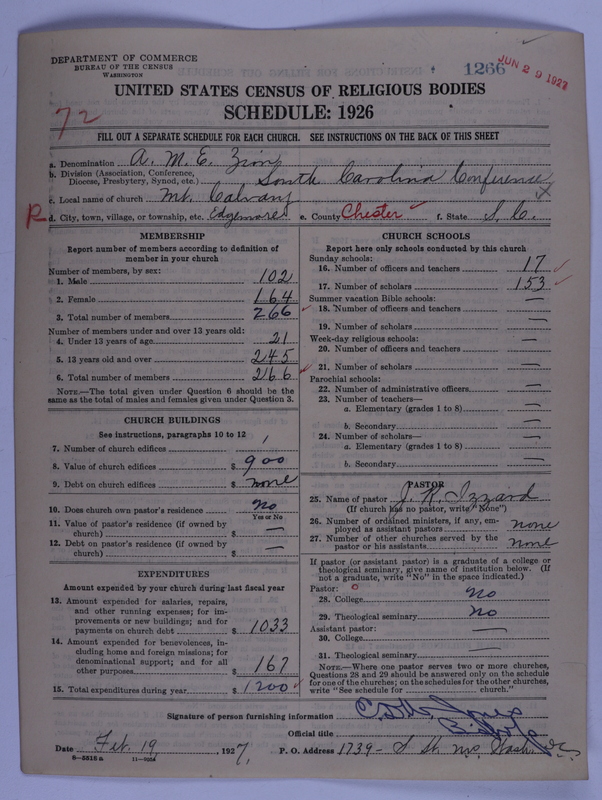 DEPARTMENT OF COMMERCE
BUREAU OF THE CENSUS
WASHINGTON
1266
JUN 29 1927
UNITED STATES CENSUS OF RELIGIOUS BODIES
SCHEDULE: 1926
72
FILL OUT A SEPARATE SCHEDULE FOR EACH CHURCH. SEE INSTRUCTIONS ON THE BACK OF THIS SHEET
a. Denomination A. M. E. Zion
b. Division (Association, Conference, Diocese, Presbytery, Synod, etc.) South Carolina Conference
c. Local name of church Mt. Calvary
R d. City, town, village, or township, etc. Edgemore e. County Chester f. State S. C.
MEMBERSHIP
Report number of members according to definition of
member in your church
Number of members, by sex:
1. Male 102
2. Female 164
3. Total number of members 266
Number of members under and over 13 years old:
4. Under 13 years of age 21
5. 13 years old and over 245
6. Total number of members 266
NOTE.—The total given under Question 6 should be
same as the total of males and females given under Question 3.
CHURCH BUILDINGS
See instructions, paragraphs 10 to 12
7. Number of church edifices 1
8. Value of church edifices $ 900
9. Debt on church edifices $ none
10. Does church own pastor's residence no
Yes or No
11. Value of pastor's residence (if owned by
church) $ —
12. Debt on pastor's residence (if owned by
church) $ —
EXPENDITURES
Amount expended by your church during last fiscal year
13. Amount expended for salaries, repairs,
and other running expenses; for im-
provements or new buildings; and for
payments on church debt $ 1033
14. Amount expended for benevolences, in-
cluding home and foreign missions; for
denominational support; and for all
other purposes $ 167
15. Total expenditures during year $ 1200
CHURCH SCHOOLS
Report here only schools conducted by this church
Sunday schools:
16. Number of officers and teachers 17
17. Number of scholars 153
Summer vacation Bible schools:
18. Number of officers and teachers —
19. Number of scholars —
Week-day religious schools:
20. Number of officers and teachers —
21. Number of scholars —
Parochial schools:
22. Number of administrative officers —
23. Number of teachers—
a. Elementary (grades 1 to 8) —
b. Secondary —
24. Number of scholars—
a. Elementary (grades 1 to 8) —
b. Secondary —
PASTOR
25. Name of pastor J. R. Izzard
(If church has no pastor, write "None")
26. Number of ordained ministers, if any, em-
ployed as assistant pastors none
27. Number of other churches served by the
pastor or his assistants none
If pastor (or assistant pastor) is a graduate of a college or
theological seminary, give name of institution below. (If
not a graduate, write "No" in the space indicated.)
Pastor: 0
28. College No
29. Theological seminary No
Assistant pastor:
30. College —
31. Theological seminary —
NOTE.—Where one pastor serves two or more churches,
Questions 28 and 29 should be answered only on the schedule
for one of the churches; on the schedules for the other churches,
write "See schedule for church."
Signature of person furnishing information
Official title
Date Feb. 19, 1927. P. O. Address 1739- S St. N.W. Wash. D.C.
8-5518 a 11-9034